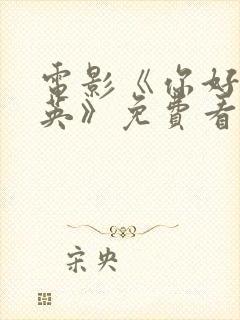 電影《你好
英》免費看
宋央